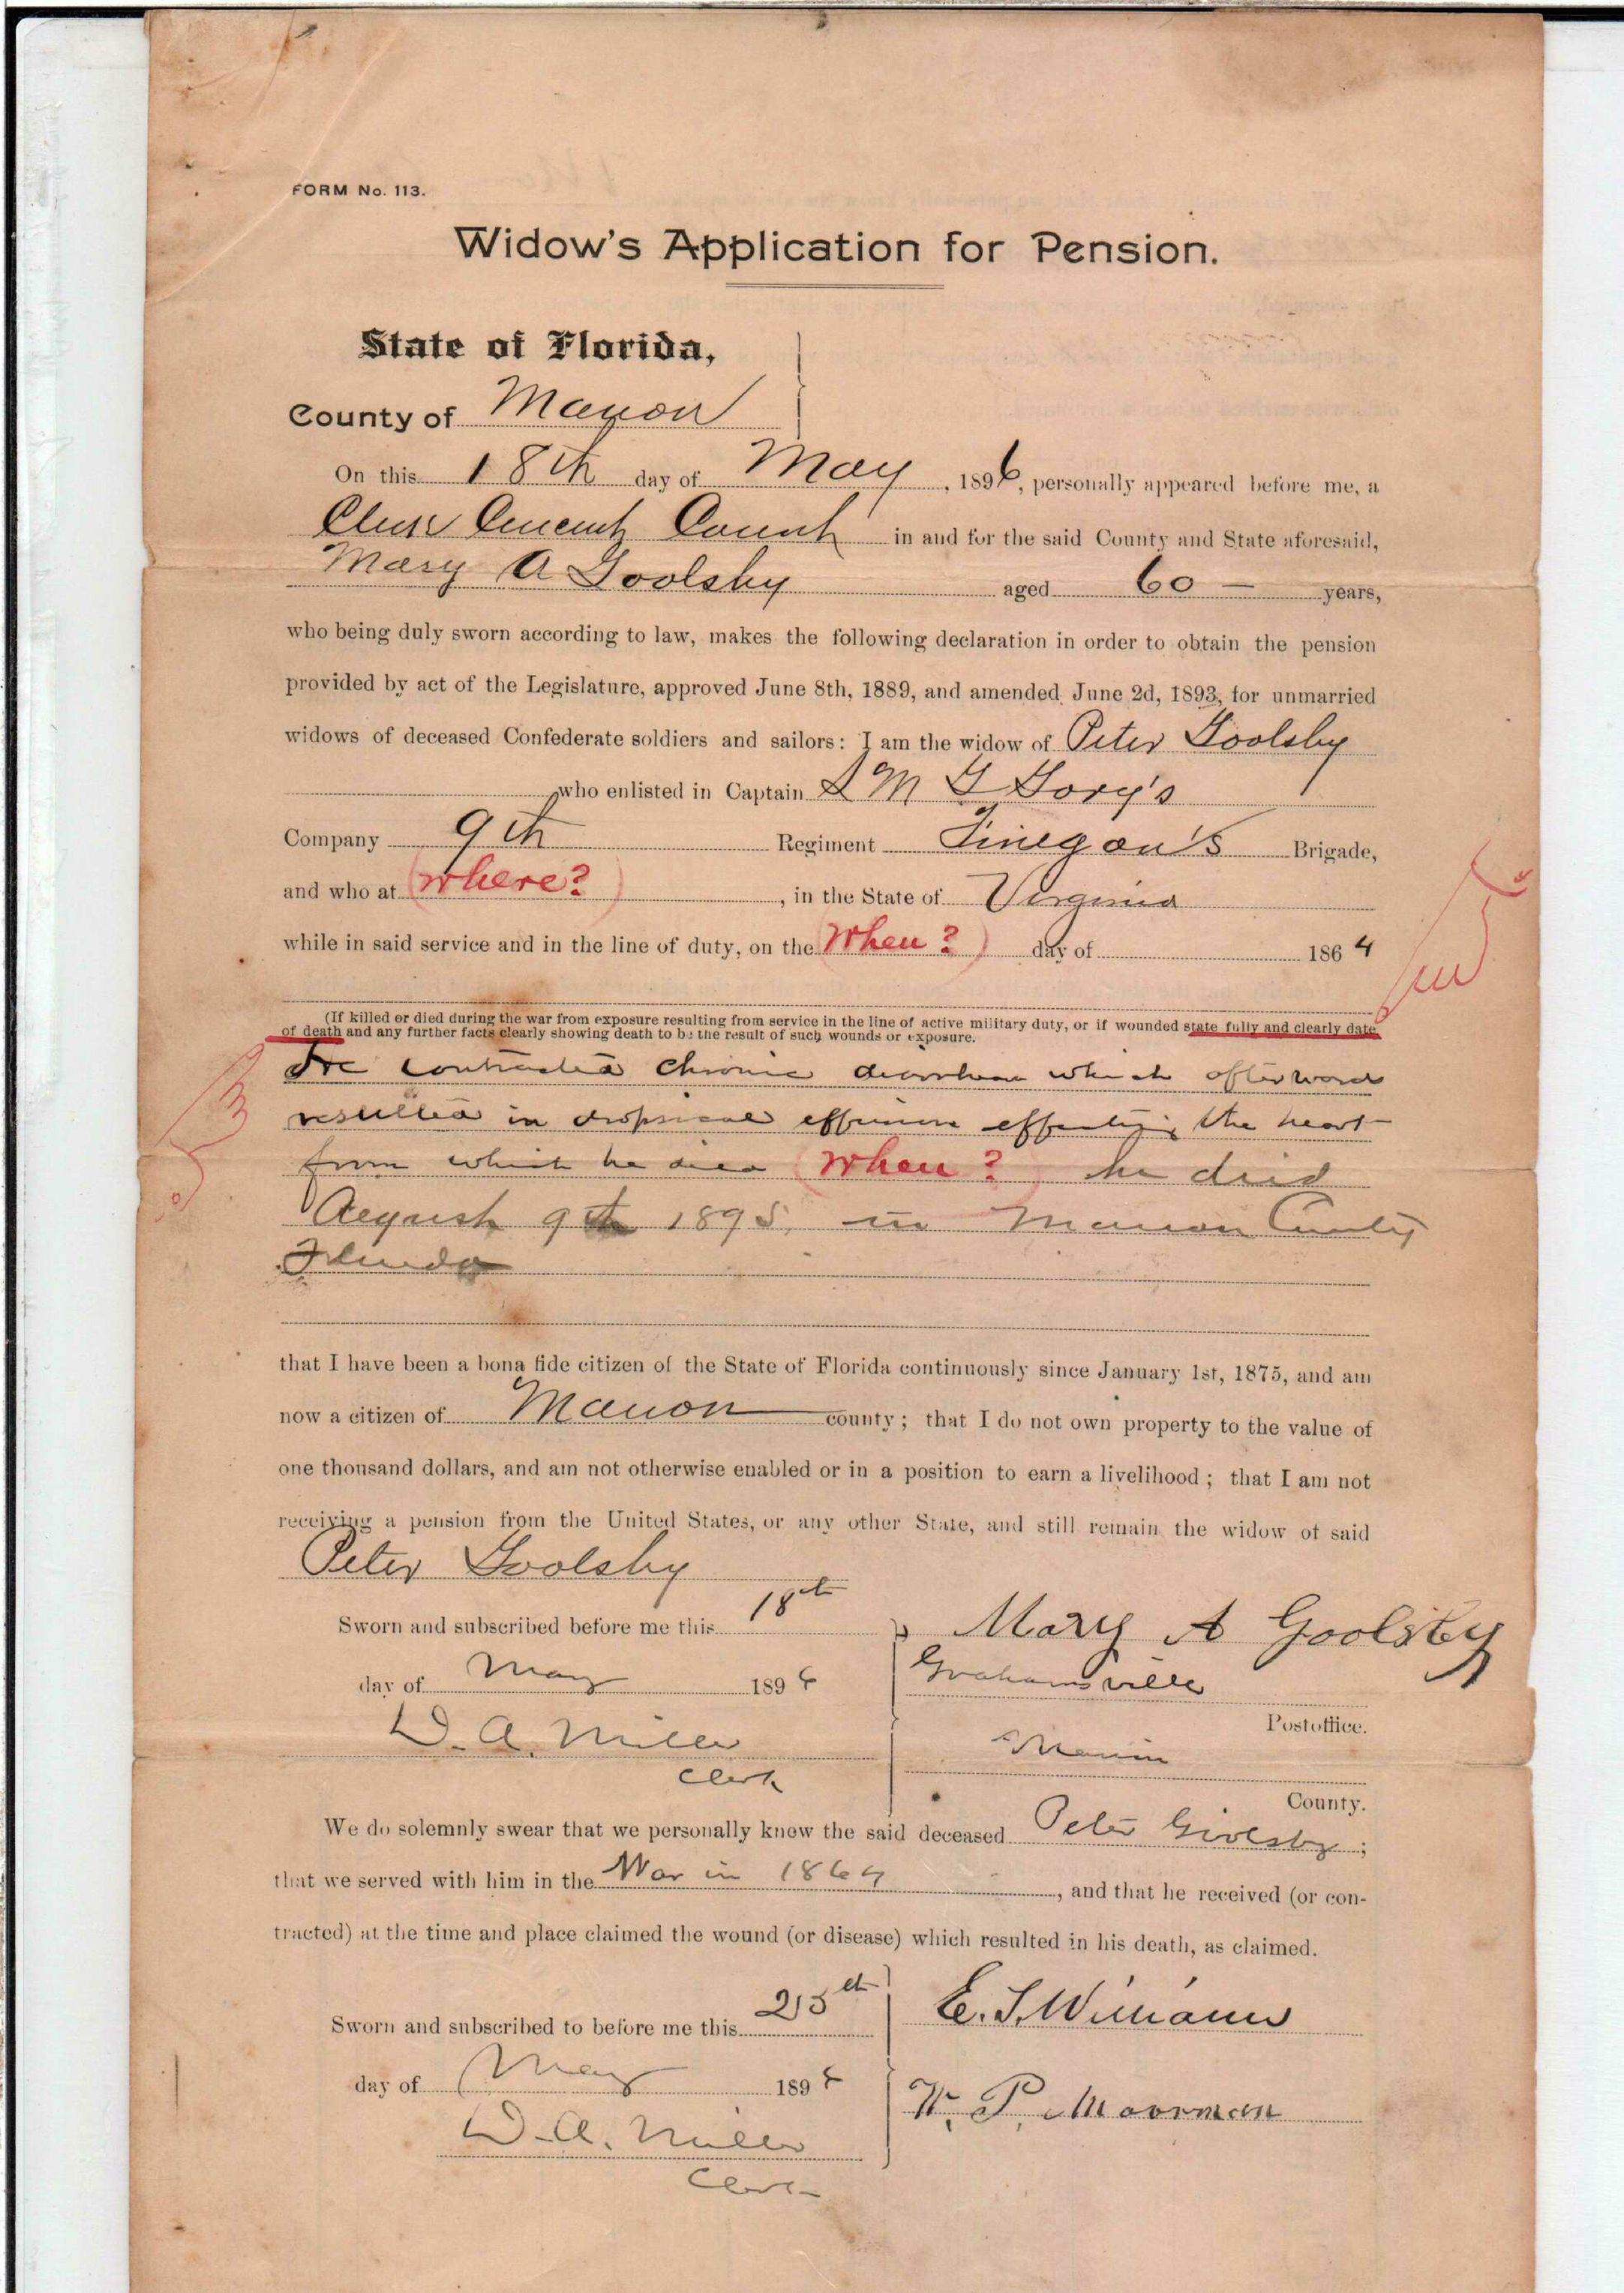 FORM No. 113.
Widow's Application for Pension.
State of Florida,
County of Marion
On this 18th day of May, 1896, personally appeared before me, a
Clerk Circuit Court in and for the said County and State aforesaid,
Mary A Goolsby aged 60 — years,
who being duly sworn according to law, makes the following declaration in order to obtain the pension
provided by act of the Legislature, approved June 8th, 1889, and amended June 2d, 1893, for unmarried
widows of deceased Confederate soldiers and sailors: I am the widow of Peter Goolsby
who enlisted in Captain S M G Gory's
Company 9th Regiment Finegan's Brigade,
and who at (where?), in the State of Virginia
while in said service and in the line of duty, on the (When?) day of 1864
(If killed or died during the war from exposure resulting from service in the line of active military duty, or if wounded state fully and clearly date
of death and any further facts clearly showing death to be the result of such wounds or exposure.
He contracted chronic diarrhoea which afterward
resulted in dropsical effusion effecting the heart
from which he died (when?) he died
August 9th 1895, in Marion County
Florida
that I have been a bona fide citizen of the State of Florida continuously since January 1st, 1875, and am
now a citizen of Marion county; that I do not own property to the value of
one thousand dollars, and am not otherwise enabled or in a position to earn a livelihood; that I am not
receiving a pension from the United States, or any other State, and still remain the widow of said
Peter Goolsby
Sworn and subscribed before me this 18th
day of May 1896
D. A. Miller
Clerk
Mary A Goolsby
Grahamsville
Postoffice.
Marion
County.
We do solemnly swear that we personally knew the said deceased Peter Goolsby;
that we served with him in the War in 1864, and that he received (or con-
tracted) at the time and place claimed the wound (or disease) which resulted in his death, as claimed.
Sworn and subscribed to before me this 25th
day of May 1896
D. A. Miller
Clerk
E. S.
W. P. Moorman